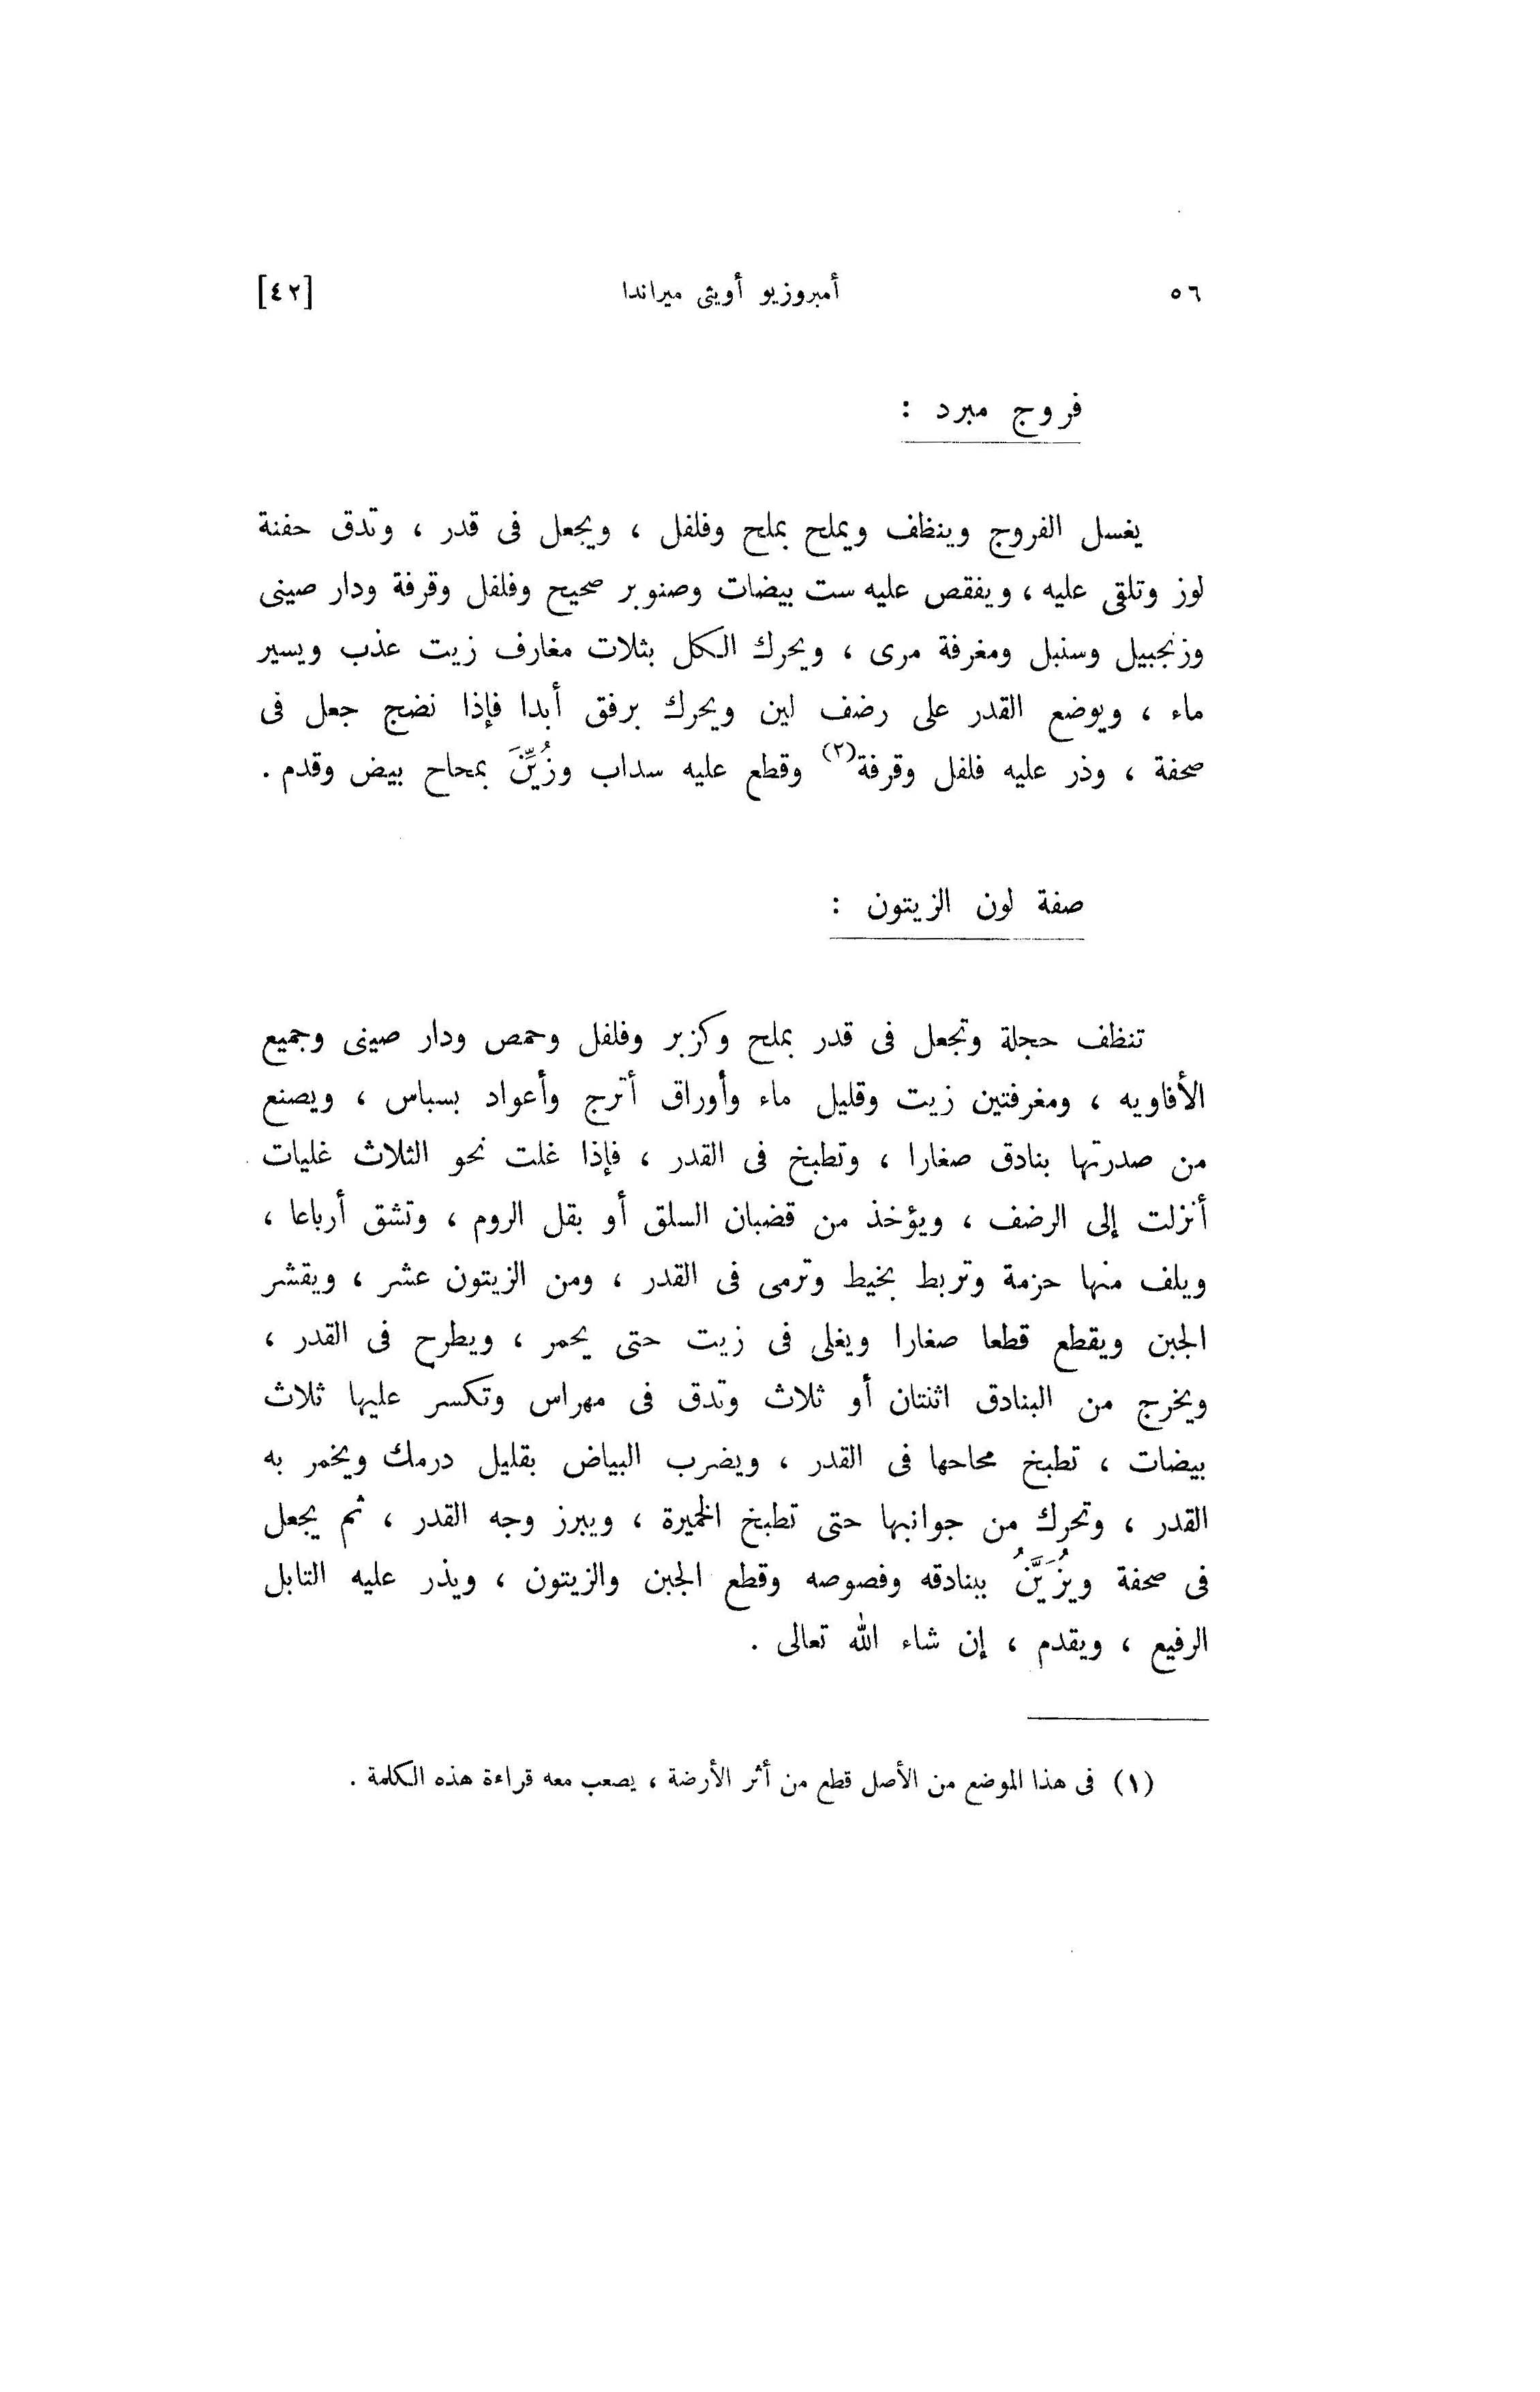 ٥٦ أمبروزيو أويثى ميراندا [٤٢]
فروج مبرد :
يغسل الفروج وينظف ويملح بملح وفلفل ، ويجعل فى قدر ، وتدق حفنة
لوز وتلقى عليه ، ويفقص عليه ست بيضات وصنوبر صحيح وفلفل وقرفة ودار صينى
وزنجبيل وسنبل ومغرفة مرى ، ويحرك الكل بثلاث مغارف زيت عذب ويسير
ماء ، ويوضع القدر على رضف لين ويحرك برفق أبدا فإذا نضج جعل فى
صحفة ، وذر عليه فلفل وقرفة(٢) وقطع عليه سداب وزُيِّنَ بمحاح بيض وقدم .
صفة لون الزيتون :
تنظف حجلة وتجعل فى قدر بملح وكزبر وفلفل وحمص ودار صينى وجميع
الأفاويه ، ومغرفتين زيت وقليل ماء وأوراق أترج وأعواد بسباس ، ويصنع
من صدرتها بنادق صغارا ، وتطبخ فى القدر ، فإذا غلت نحو الثلاث غليات
أنزلت إلى الرضف ، ويؤخذ من قضبان السلق أو بقل الروم ، وتشق أرباعا ،
ويلف منها حزمة وتربط بخيط وترمى فى القدر ، ومن الزيتون عشر ، ويقشر
الجبن ويقطع قطعا صغارا ويغلى فى زيت حتى يحمر ، ويطرح فى القدر ،
ويخرج من البنادق اثنتان أو ثلاث وتدق فى مهراس وتكسر عليها ثلاث
بيضات ، تطبخ محاحها فى القدر ، ويضرب البياض بقليل درمك ويخمر به
القدر ، وتحرك من جوانبها حتى تطبخ الخميرة ، ويبرز وجه القدر ، ثم يجعل
فى صحفة ويُزَيَّنُ ببنادقه وفصوصه وقطع الجبن والزيتون ، ويذر عليه التابل
الرفيع ، ويقدم ، إن شاء الله تعالى .
(١) فى هذا الموضع من الأصل قطع من أثر الأرضة ، يصعب معه قراءة هذه الكلمة .